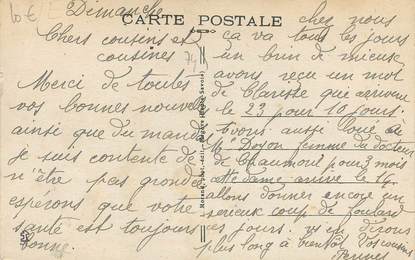 10 €
Dimanche
CARTE POSTALE
Chers cousins et
cousines
74
Merci de toutes
vos bonnes nouvelles
ainsi que du mandat
je suis contente de
n'être pas grondée
espérons que votre
santé est toujours
bonne.
chez nous
ça va tous les jours
un brin de mieux
avons reçu un mot
de Clarisse qui arrivera
le 23 pour 10 jours.
avons aussi loué à
Me Doyon femme du docteur
de Chaumont pour 3 mois
cette dame arrive le 14
allons donner encore un
serieux coup de foulard
ces jours. vs en dirons
plus long à bientôt Vos cousins